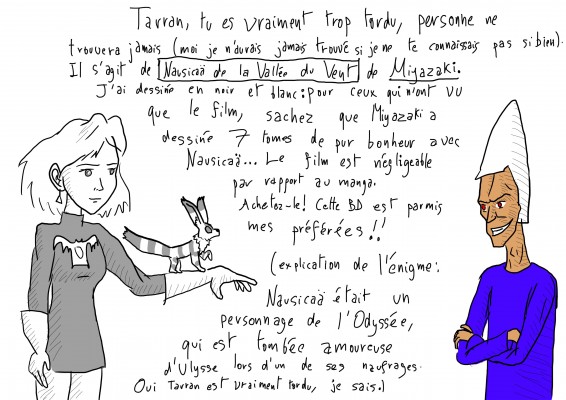 Tarran, tu es vraiment trop tordu, personne ne
trouvera jamais (moi je n'aurais jamais trouvé si je ne te connaissais pas si bien).
Il s'agit de Nausicaä de la Vallée du Vent de Miyazaki.
J'ai dessiné en noir et blanc : pour ceux qui n'ont vu
que le film, sachez que Miyazaki a
dessiné 7 tomes de pur bonheur avec
Nausicaä... Le film est négligeable
par rapport au manga.
Achetez-le! Cette BD est parmis
mes préférées!!
(explication de l'énigme:
Nausicaä était un
personnage de l'Odyssée,
qui est tombée amoureuse
d'Ulysse lors d'un de ses naufrages.
Oui Tarran est vraiment tordu, je sais.)